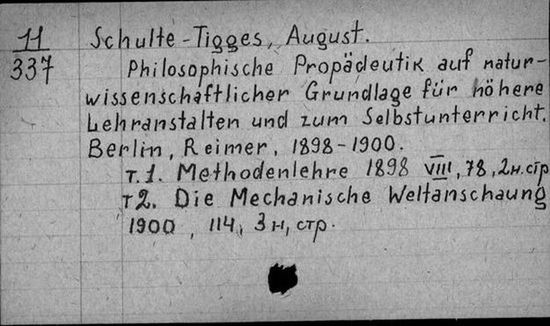 11
337
Schulte-Tigges, August.
Philosophische Propädeutik auf natur-
wissenschaftlicher Grundlage für höhere
Lehranstalten und zum Selbstunterricht.
Berlin, Reimer, 1898-1900.
т.1. Methodenlehre 1898 VIII, 78, 2н.стр
т2. Die Mechanische Weltanschaung
1900, 114, 3н, стр.